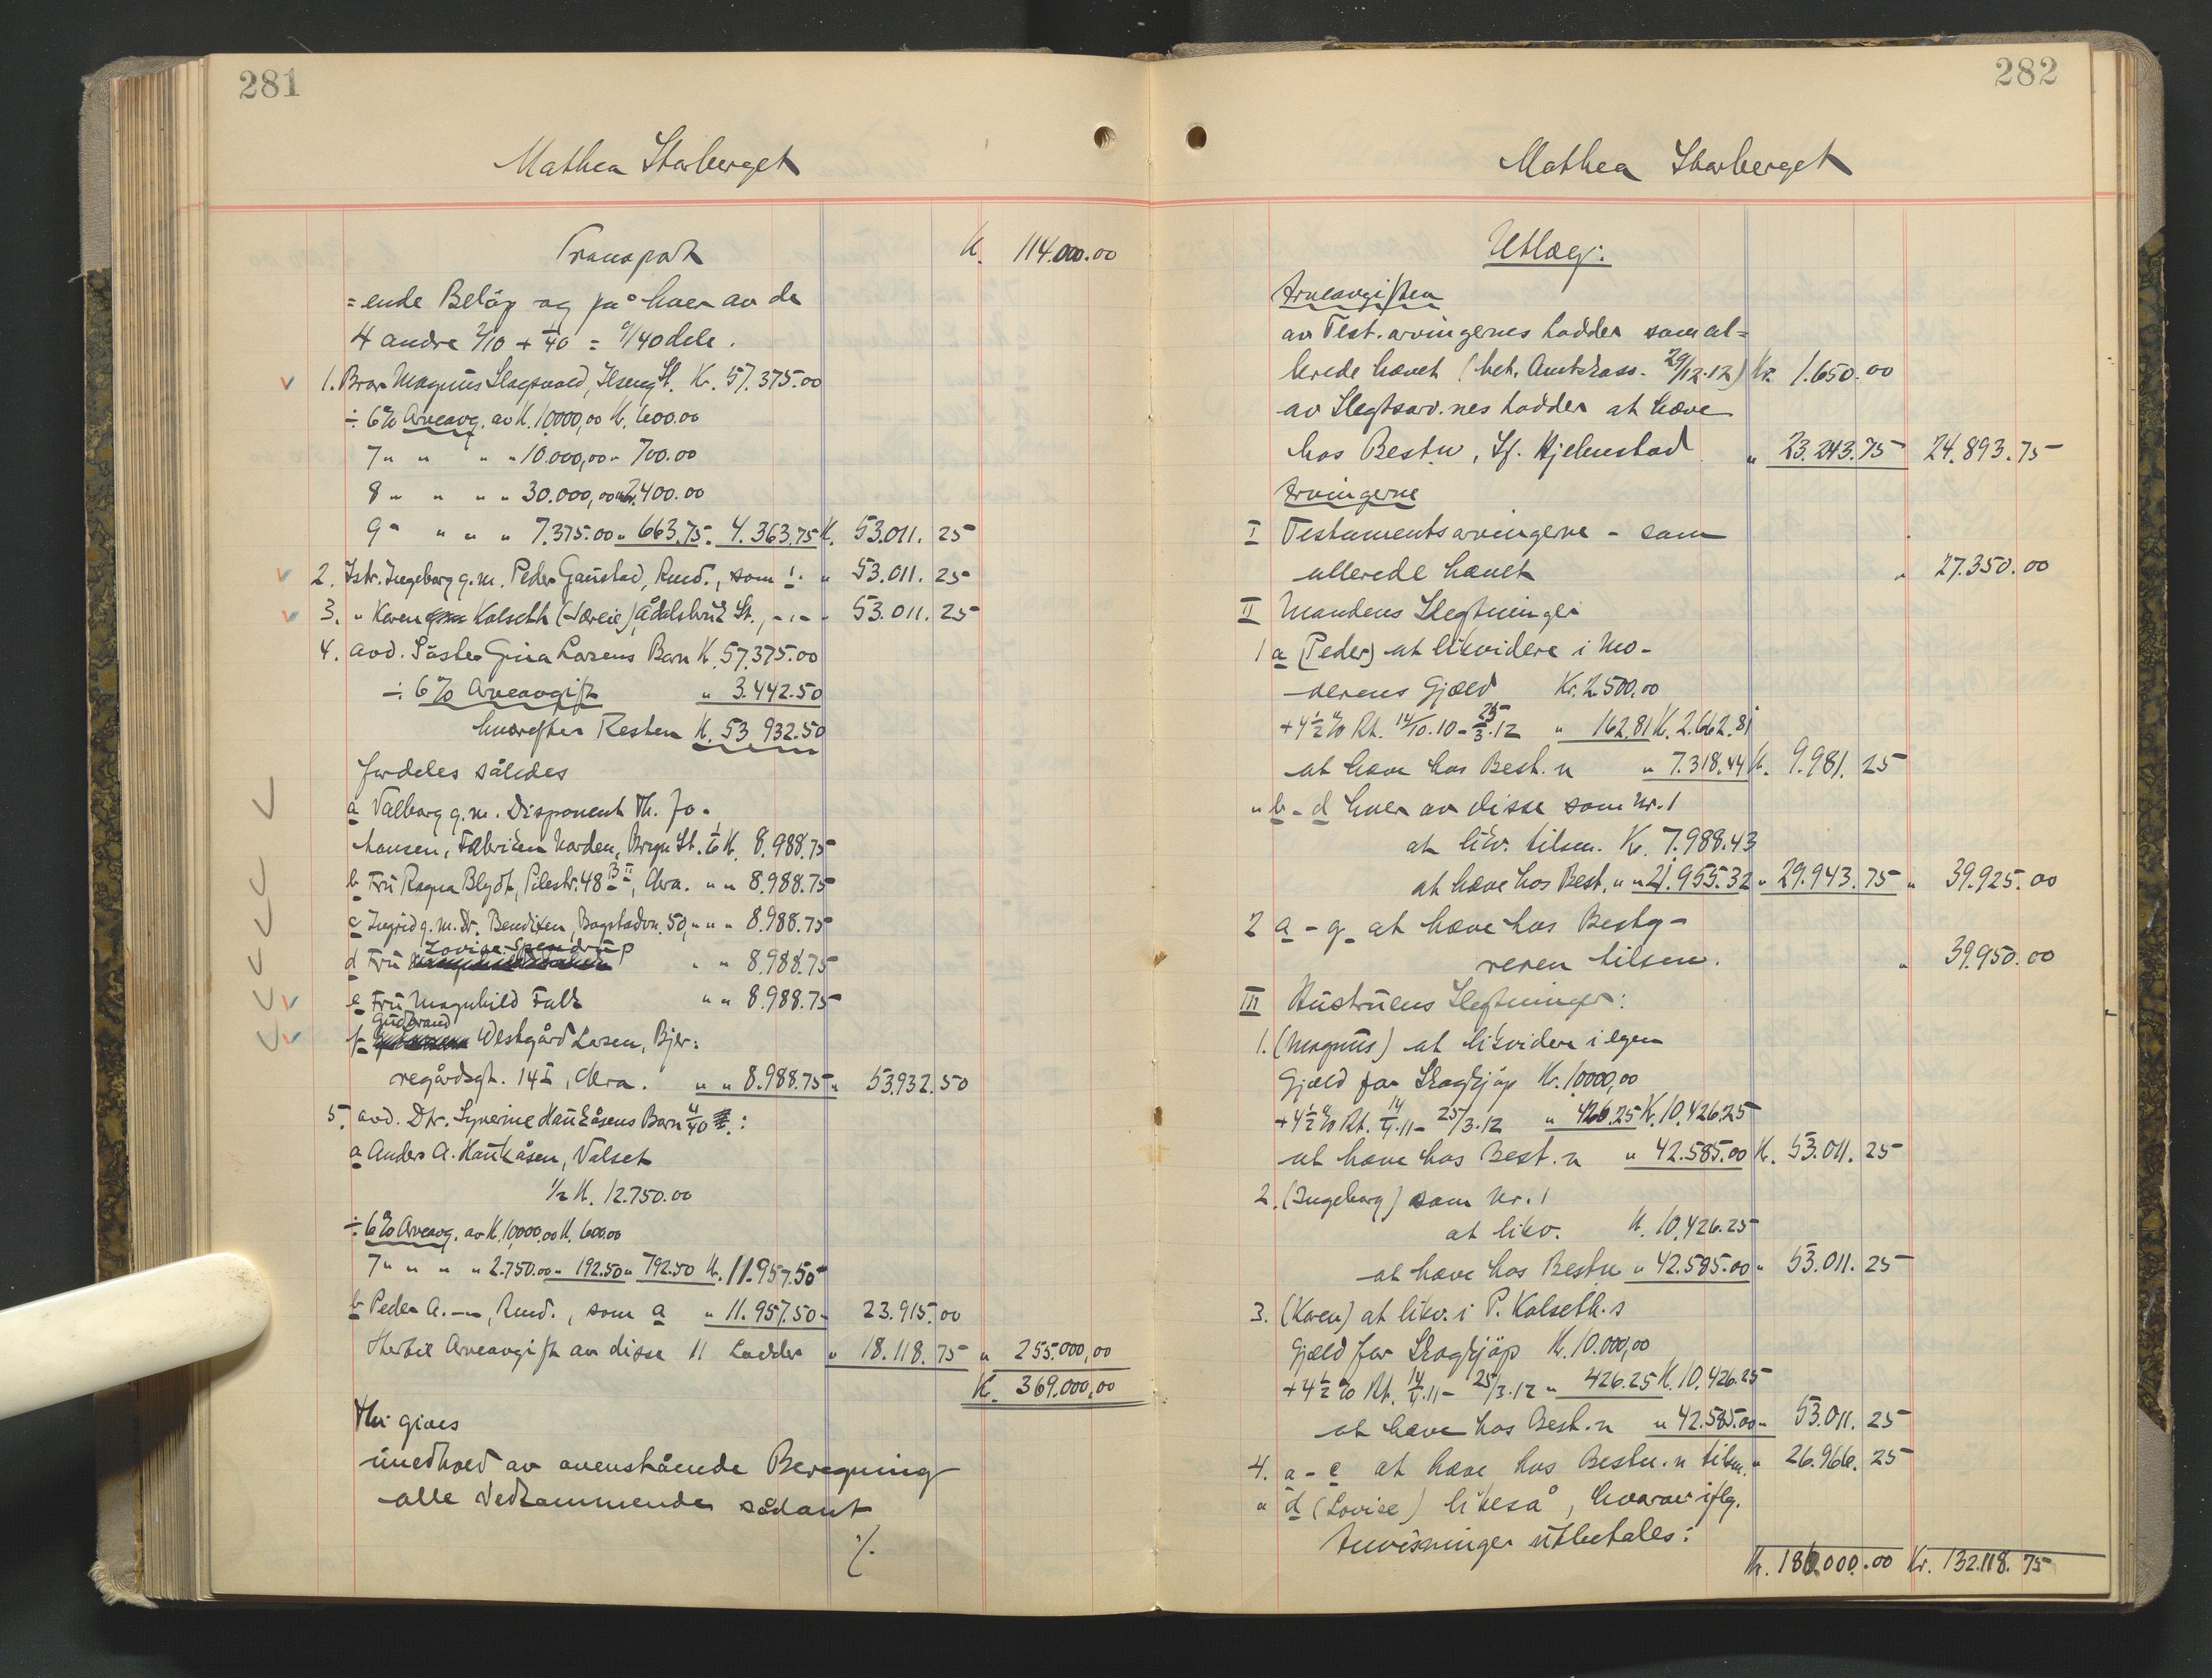 281
Mathea Storberget
Transport K. 114.000.00
=ende Beløp og på hver av de
4 andre 2/10 + 1/40 = 9/40 dele.
1. Bror Magnus Slagsvold, Ilseng St. Kr. 57.375.00
÷ 6% Arveavg. av K. 10000,00 K. 600.00
7 " " " " 10.000,00 " 700.00
8 " " " " 30.000,00 " 2.400.00
9 " " " " 7.375.00 " 663.75 " 4.363.75 K. 53.011.25
2. Sstr. Ingeborg g.m. Peder Gaustad, Rmd., som 1. " 53.011.25
3. " Karen Kolseth (Løreie), Ådalsbruk St., -"- " 53.011.25
4. avd. Søster Gina Larsens Barn K. 57.375.00
÷ 6% Arveavgift " 3.442.50
hvorefter Resten K. 53 932.50
fordeles således
a Valborg g.m. Disponent Th. Jo-
hansen, Fabriken Norden, Bryn St. 1/6 K. 8.988.75
b Fru Ragna Blydt, Pilestr. 48 B II, Kra. " " 8.988.75
c Ingrid g.m. Dr. Bendixen, Bogstadvn. 50, " " " 8.988.75
d Fru Lovise Spendrup " " 8.988.75
e Fru Magnhild Falk " " 8.988.75
f Gudbrand Westgård Larsen, Bjer=
regårdsgt. 14 I, Kra. " " 8.988.75 " 53.932.50
5. avd. Dtr. Syverine Haukåsens Barn 4/40 :
a Anders A. Haukåsen, Valset
1/2 K. 12.750.00
÷ 6% Arveavg. av K. 10000,00 K. 600.00
7 " " " " 2.750.00 " 192.50 " 792.50 K. 11.957.50
b Peder A. -"-, Rmd., som a " 11.957.50 " 23.915.00
Hertil Arveavgift av disse 11 Lodder " 18.118.75 " 255.000,00
K. 369.000,00
Thi gives
uredhold av ovenstående Beregning
alle Vedkommende sådant
./.
282
Mathea Storberget
Utlæg:
Arveavgiften
av Test. arvingernes Lodder som al=
lerede hævet (bet. Amtskass. 29/12.12) Kr. 1.650.00
av Slegtsarv.nes Lodder at hæve
hos Bestn, Sf. Hjelmstad " 23.243.75 24.893.75
Arvingerne
I Testamentsarvingerne - som
allerede hævet " 27.350.00
II Mandens Slegtninger
1 a (Peder) at likvidere i Mo-
derens Gjæld Kr. 2.500.00
+ 4 1/2 % Rt. 14/10.10 - 25/3.12 " 162.81 K. 2.662.81
at hæve hos Best.n " 7.318.44 K. 9.981.25
" b - d hver av disse som Nr. 1
at likv. tilsm. Kr. 7.988.43
at hæve hos Best. " " 21.955.32 " 29.943.75 " 39.925.00
2 a - g at hæve hos Besty-
reren tilsm. " 39.950.00
III Hustruens Slegtninger:
1. (Magnus) at likvidere i egen
Gjæld for Skogkjøp Kr. 10000,00
+ 4 1/2 % Rt. 14/4.11 - 25/3.12 " 426.25 K. 10.426.25
at hæve hos Best.n " 42.585.00 K. 53.011.25
2. (Ingeborg) som Nr. 1
at likv. K. 10.426.25
at hæve hos Bestn " 42.585.00 " 53.011.25
3. (Karen) at likv. i P. Kolseth.s
Gjæld for Skogkjøp K. 10.000,00
+ 4 1/2 % Rt. 14/4.11 - 25/3.12 " 426.25 K. 10.426.25
at hæve hos Best.n " 42.585.00 " 53.011.25
4. a - c at hæve hos Bestn.n tilsm. " 26.966.25
" d (Lovise) likeså, hvorav iflg.
Anvisninger utbetales:
K. 186.000.00 Kr. 132.118.75